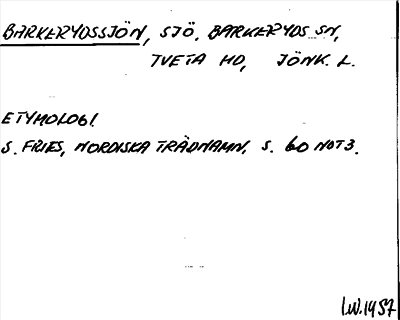 BARKERYDSSJÖN, SJÖ, BARKERYDS SN,
TVETA HD, JÖNK. L.
ETYMOLOGI.
S. FRIES, NORDISKA TRÄDNAMN, S. 60 NOT 3.
I.W. 1957